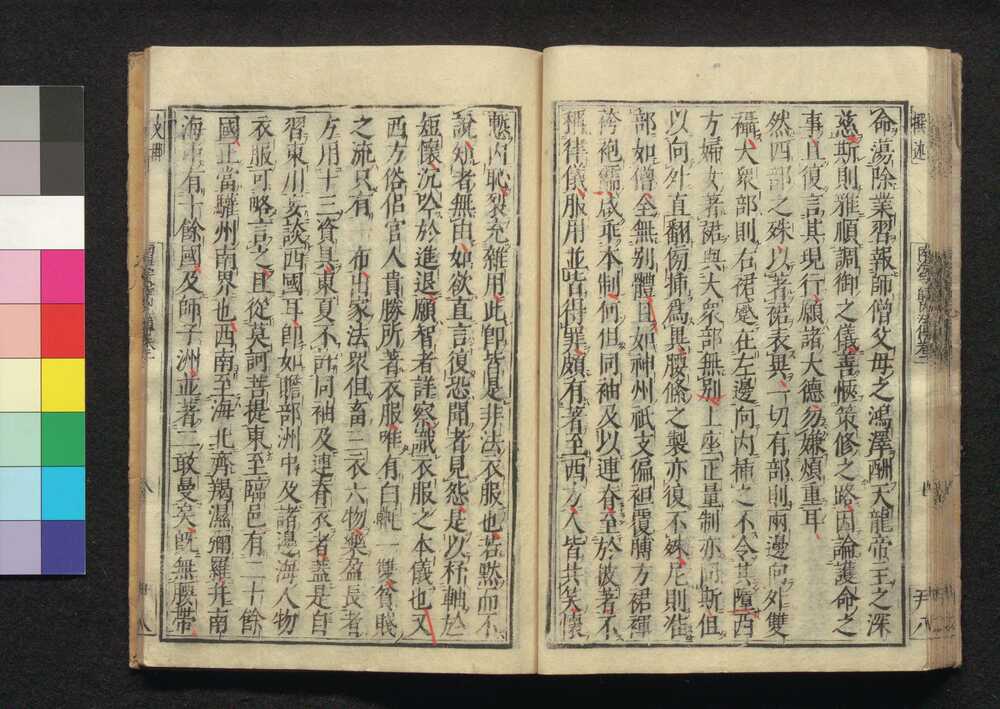 命蕩除業習報師僧父母之鴻澤酬天龍帝王之深
慈斯則雅順調御之儀善愜策修之路因論護命之
事且復言其現行願諸大德勿嫌煩重耳
然四部之殊以著裙表異一切有部則兩邊向外雙
襵大衆部則右裙蹙在左邊向內插之不令其墮西
方婦女著裙與大衆部無別上座正量制亦同斯但
以向外直翻傍插爲異腰絛之製亦復不殊尼則准
部如僧全無別體且如神州祇支偏袒覆膊方裙禪
袴袍襦咸乖本制何但同袖及以連脊至於披著不
稱律儀服用並皆得罪頗有著至西方人皆共笑懷
慙內恥裂充雜用此即皆是非法衣服也若默而不
說知者無由如欲直言復恐聞者見怨是以杼軸於
短懷沉吟於進退願智者詳察識衣服之本儀也又
西方俗侶官人貴勝所著衣服唯有白㲲一雙貧賤
之流只有一布出家法衆但畜三衣六物樂盈長者
方用十三資具東夏不許同袖及連脊衣者蓋是自
習東川妄談西國耳即如瞻部洲中及諸邊海人物
衣服可略言之且從莫訶菩提東至臨邑有二十餘
國正當驩州南界也西南至海北齊羯濕彌羅并南
海中有十餘國及師子洲並著二敢曼矣既無腰帶